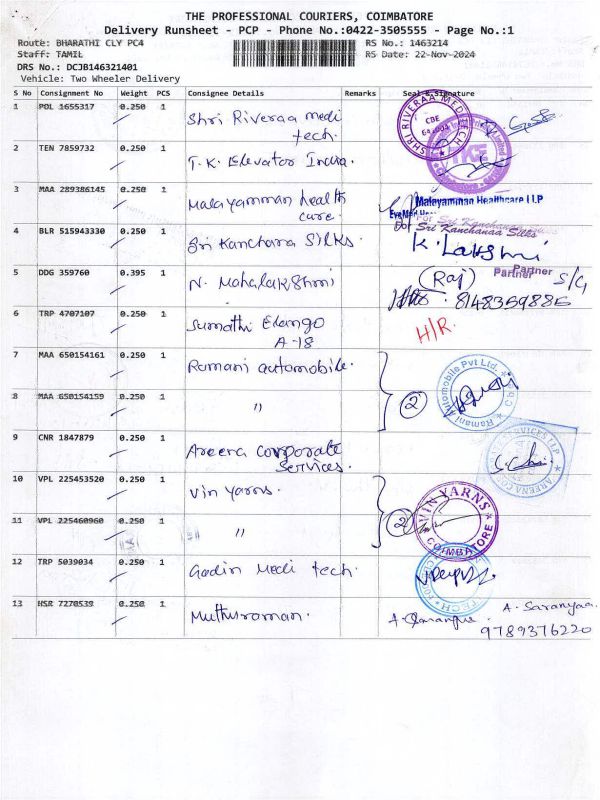 THE PROFESSIONAL COURIERS, COIMBATORE
Delivery Runsheet - PCP - Phone No.:0422-3505555 - Page No.:1
Route: BHARATHI CLY PC4 RS No.: 1463214
Staff: TAMIL RS Date: 22-Nov-2024
DRS No.: DCJB146321401
Vehicle: Two Wheeler Delivery
S No Consignment No Weight PCS Consignee Details Remarks Seal & Signature
1 POL 1655317 0.250 1 Shri Riveraa medi
tech.
SHRI RIVERAA MEDI TECH
CBE
2 TEN 7859732 0.250 1 T.K. Elevator India.
3 MAA 289386145 0.250 1 Malayamman health
care.
Malayamman Healthcare LLP
4 BLR 515943330 0.250 1 Sri Kanchana SILKS.
For Sri Kanchanaa Silks
K. Lakshmi
Partner
5 DDG 359760 0.395 1 N. Mahalakshmi
(Raj) S/G
8148359885
6 TRP 4707107 0.250 1 Sumathi Elango
A-18
H/R.
7 MAA 650154161 0.250 1 Ramani automobile.
8 MAA 650154159 0.250 1 "
2
Ramani Automobile Pvt Ltd.
9 CNR 1847879 0.250 1 Areera corporate
Services.
10 VPL 225453520 0.250 1 Vin Yarns.
11 VPL 225460960 0.250 1 "
2
VIN YARNS
COIMBATORE
12 TRP 5039034 0.250 1 Godin Medi tech.
13 HSR 7270539 0.250 1 Muthuraman.
A. Saranyaa.
9789376220